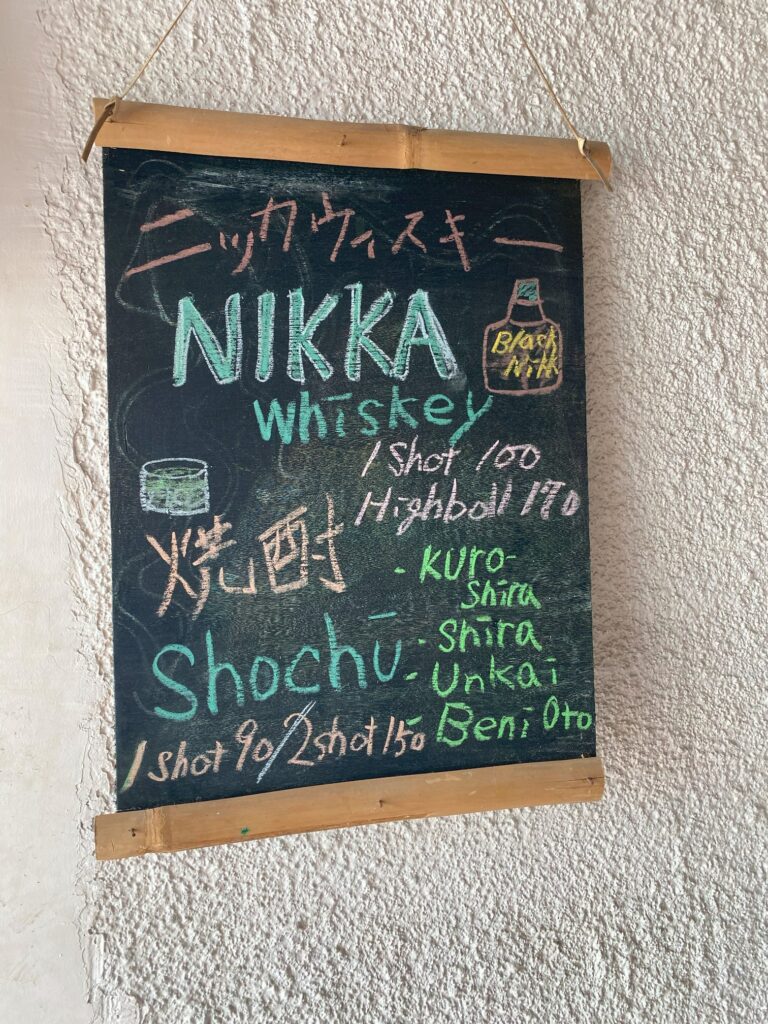 ニッカウィスキー
NIKKA
Whiskey
Black
Nikk
1 Shot 100
Highball 170
焼酎
Shochū
- Kuro-
Shira
- Shira
- Unkai
- Beni Oto
1 Shot 90/2shot 150